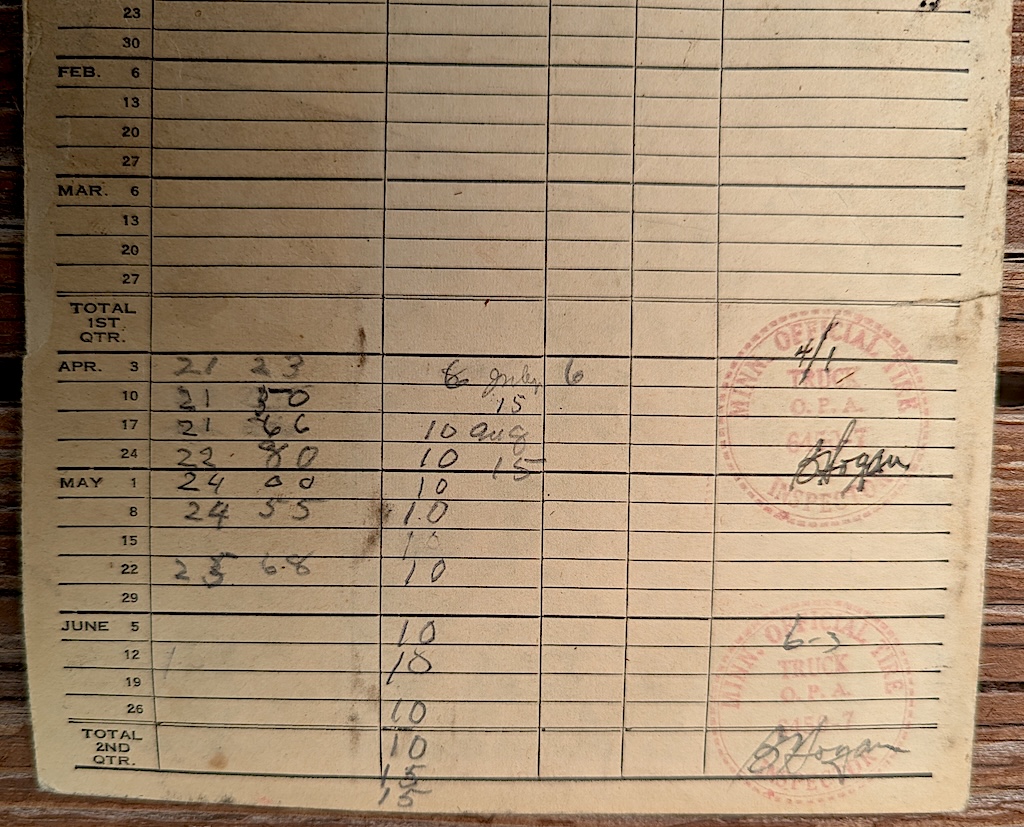 23
30
FEB. 6
13
20
27
MAR. 6
13
20
27
TOTAL
1ST
QTR.
APR. 3 21 23 6 July 6 4/1
10 21 50 15
17 21 66 10 Aug
24 22 80 10 15
MAY 1 24 00 10
8 24 55 10
15 10
22 25 68 10
29
JUNE 5 10 6-3
12 10
19
26 10
TOTAL
2ND
QTR.
10
15
15
MINN. OFFICIAL TIRE
TRUCK
O.P.A.
INSPECTOR
Hogan
MINN. OFFICIAL TIRE
TRUCK
O.P.A.
INSPECTOR
Hogan